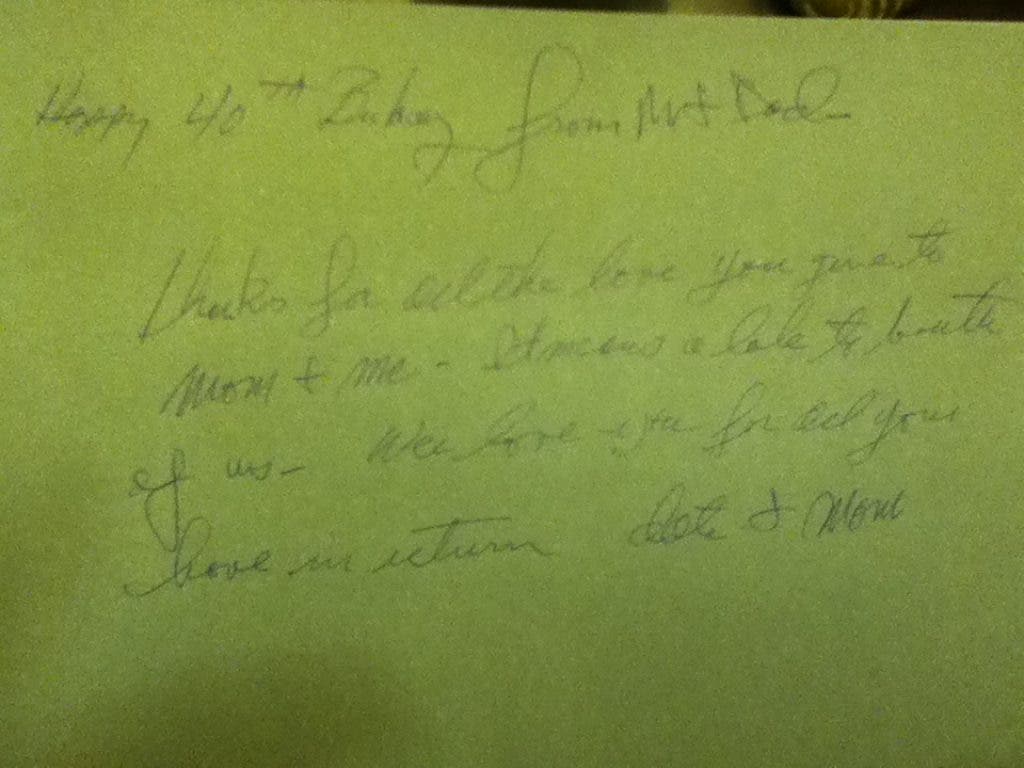 Happy 40TH from M + Dad
Thanks for all the love you give to
Mom + me - It means a lote to bouth
of us - We love you for all your
love in return & Mom